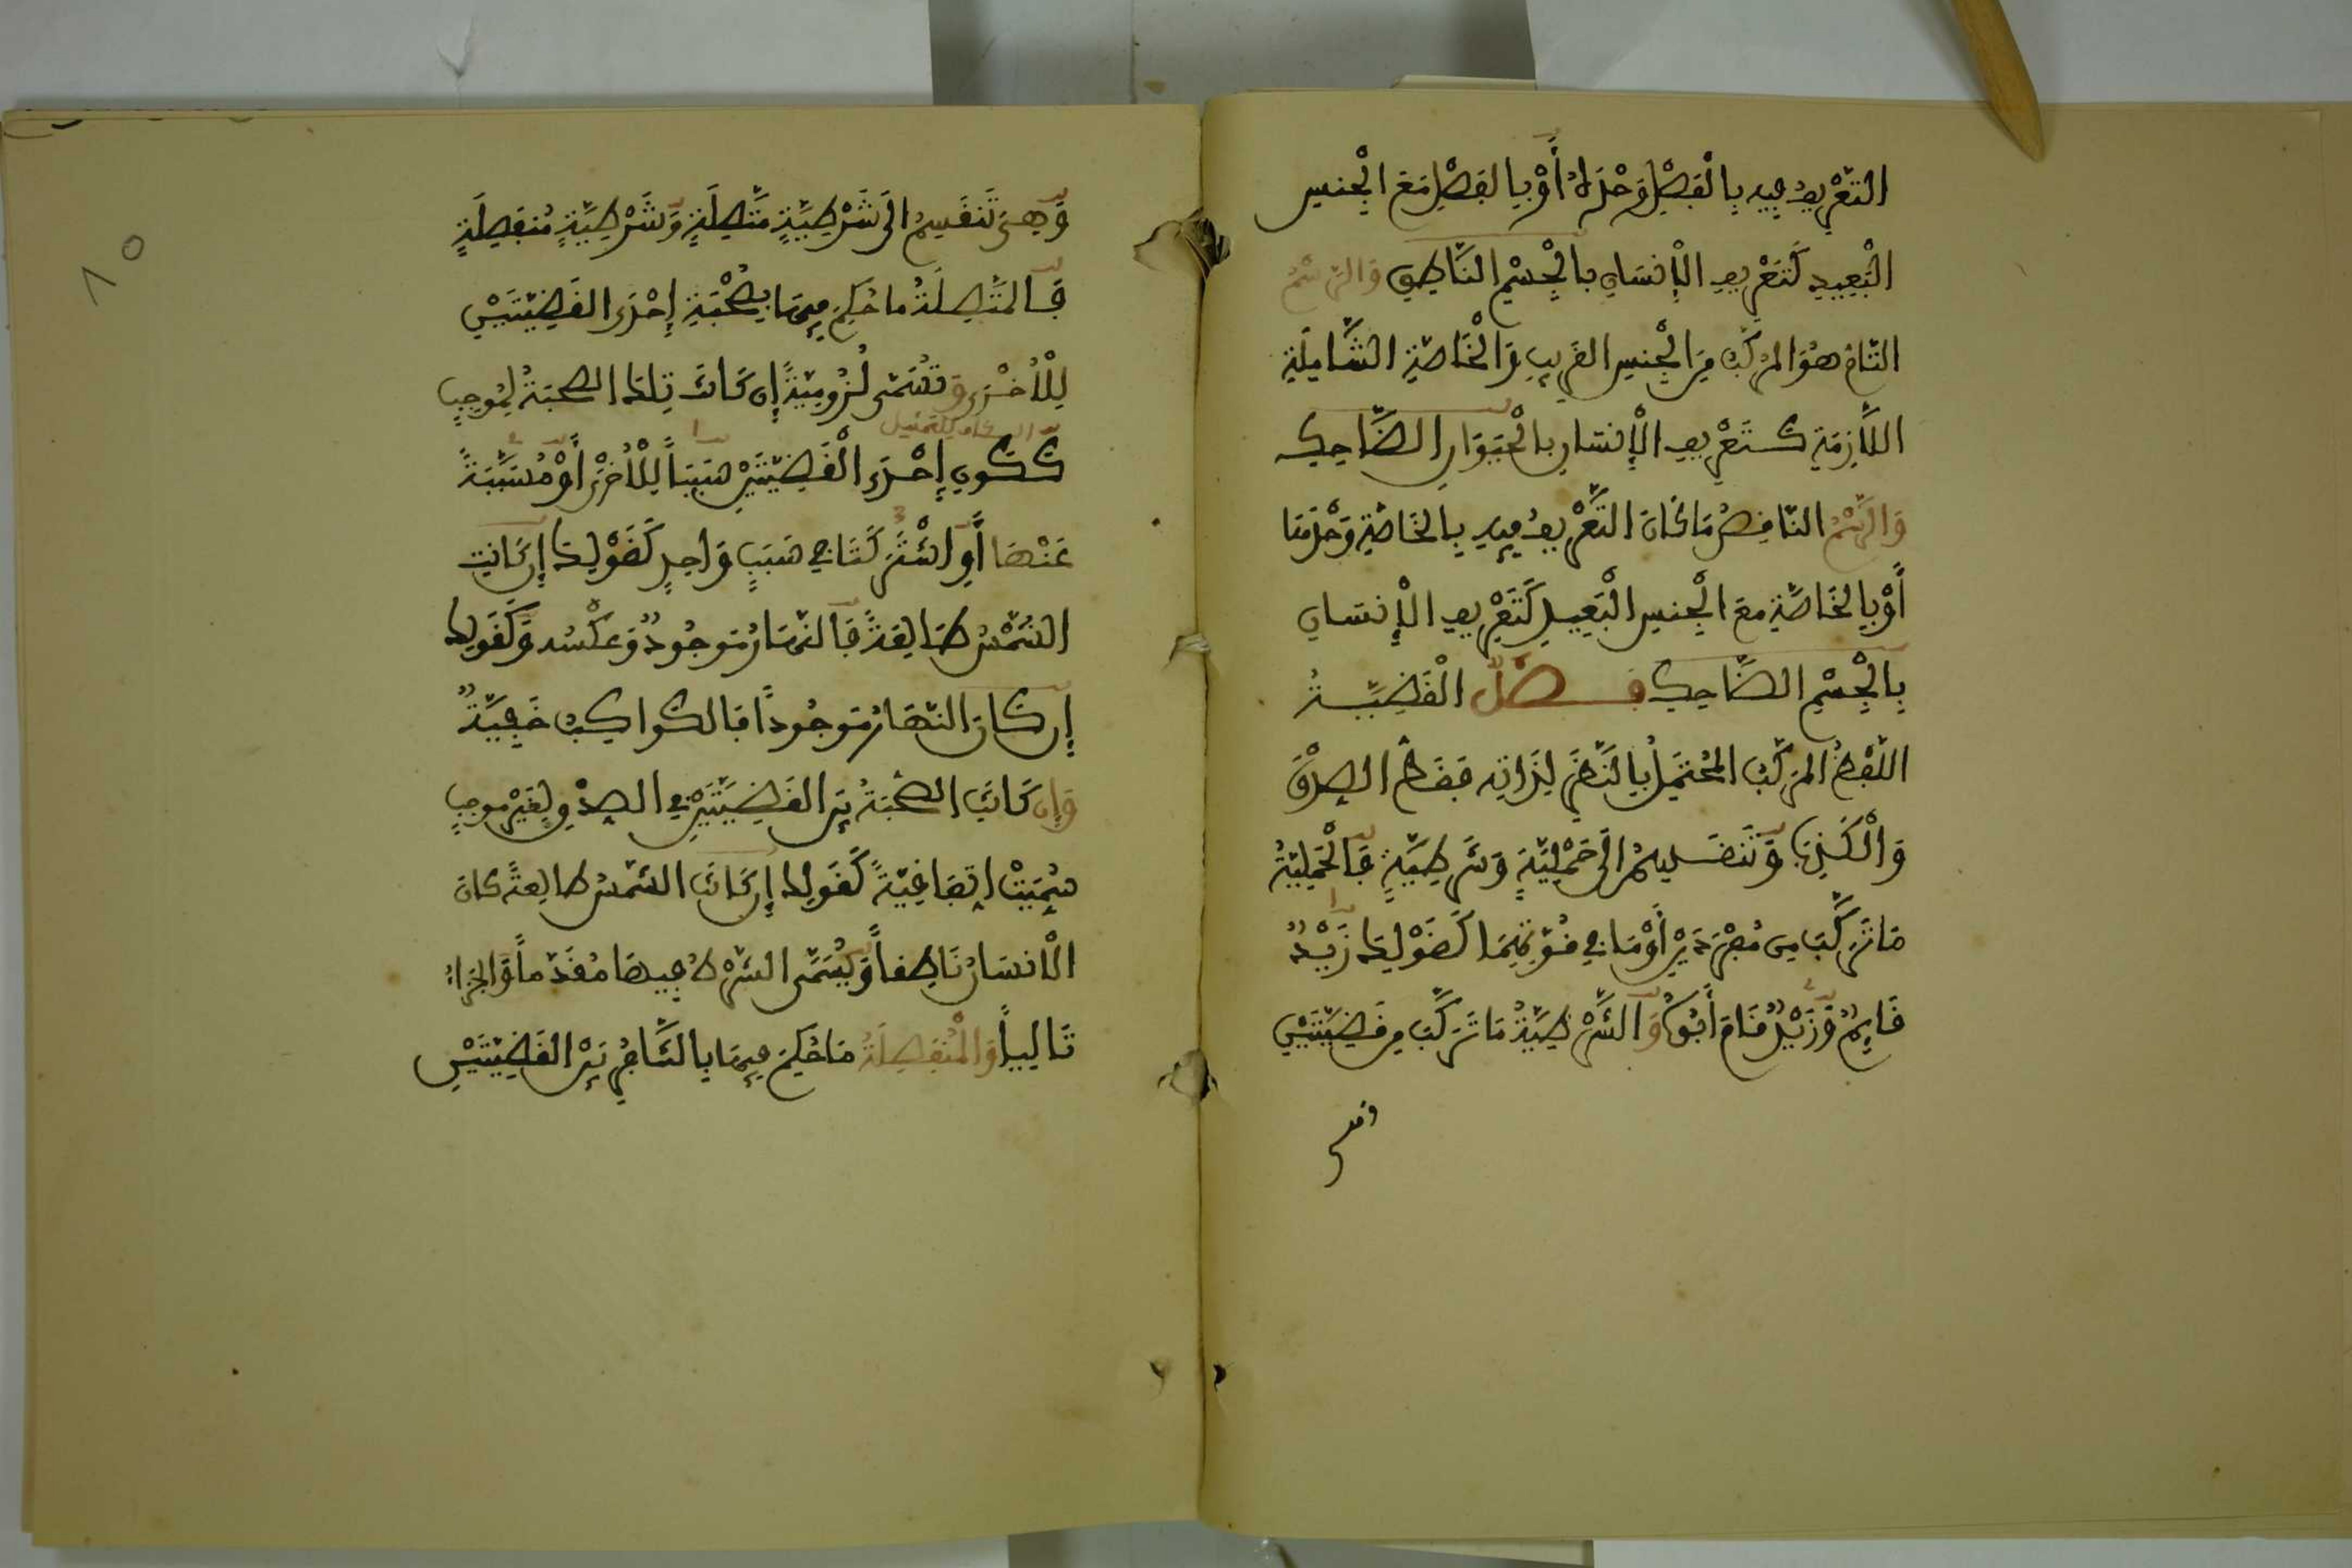 التَّعْرِيفُ فِيهِ بِالْفَصْلِ وَحْدَهُ أَوْ بِالْفَصْلِ مَعَ الْجِنْسِ
الْبَعِيدِ كَتَعْرِيفِ الْإِنْسَانِ بِالْجِسْمِ النَّاطِقِ وَالرَّسْمُ
التَّامُّ هُوَ الْمُرَكَّبُ مِنَ الْجِنْسِ الْقَرِيبِ وَالْخَاصَّةِ الشَّامِلَةِ
اللَّازِمَةِ كَتَعْرِيفِ الْإِنْسَانِ بِالْحَيَوَانِ الضَّاحِكِ
وَالرَّسْمُ النَّاقِصُ مَا كَانَ التَّعْرِيفُ فِيهِ بِالْخَاصَّةِ وَحْدَهَا
أَوْ بِالْخَاصَّةِ مَعَ الْجِنْسِ الْبَعِيدِ كَتَعْرِيفِ الْإِنْسَانِ
بِالْجِسْمِ الضَّاحِكِ فَصْلٌ الْقَضِيَّةُ
اللَّفْظُ الْمُرَكَّبُ الْمُحْتَمِلُ بِالنَّظَرِ لِذَاتِهِ فَقَطْ الصِّدْقَ
وَالْكَذِبَ وَتَنْقَسِمُ إِلَى حَمْلِيَّةٍ وَشَرْطِيَّةٍ فَالْحَمْلِيَّةُ
مَا تَرَكَّبَ مِنْ مُفْرَدَيْنِ أَوْ مَا فِي قُوَّتِهِمَا كَقَوْلِكَ زَيْدٌ
قَائِمٌ وَزَيْدٌ قَامَ أَبُوهُ وَالشَّرْطِيَّةُ مَا تَرَكَّبَ مِنْ قَضِيَّتَيْنِ
وهي
١٥
وَهِيَ تَنْقَسِمُ إِلَى شَرْطِيَّةٍ مُتَّصِلَةٍ وَشَرْطِيَّةٍ مُنْفَصِلَةٍ
فَالْمُتَّصِلَةُ مَا حُكِمَ فِيهَا بِصُحْبَةِ إِحْدَى الْقَضِيَّتَيْنِ
لِلْأُخْرَى وَتُسَمَّى لُزُومِيَّةً إِنْ كَانَتْ تِلْكَ الصُّحْبَةُ لِمُوجِبٍ
الكاف للتمثيل
كَكَوْنِ إِحْدَى الْقَضِيَّتَيْنِ سَبَبًا لِلْأُخْرَى أَوْ مُسَبَّبَةً
عَنْهَا أَوِ اشْتَرَكَتَا فِي سَبَبٍ وَاحِدٍ كَقَوْلِكَ إِنْ كَانَتِ
الشَّمْسُ طَالِعَةً فَالنَّهَارُ مَوْجُودٌ وَعَكْسُهُ وَكَقَوْلِكَ
إِنْ كَانَ النَّهَارُ مَوْجُودًا فَالْكَوَاكِبُ خَفِيَّةٌ
وَإِنْ كَانَتِ الصُّحْبَةُ بَيْنَ الْقَضِيَّتَيْنِ فِي الصِّدْقِ لِغَيْرِ مُوجِبٍ
سُمِّيَتْ اتِّفَاقِيَّةً كَقَوْلِكَ إِنْ كَانَتِ الشَّمْسُ طَالِعَةً كَانَ
الْإِنْسَانُ نَاطِقًا وَيُسَمَّى الشَّرْطُ فِيهَا مُقَدَّمًا وَالْجَزَاءُ
تَالِيًا وَالْمُنْفَصِلَةُ مَا حُكِمَ فِيهَا بِالتَّنَافُرِ بَيْنَ الْقَضِيَّتَيْنِ